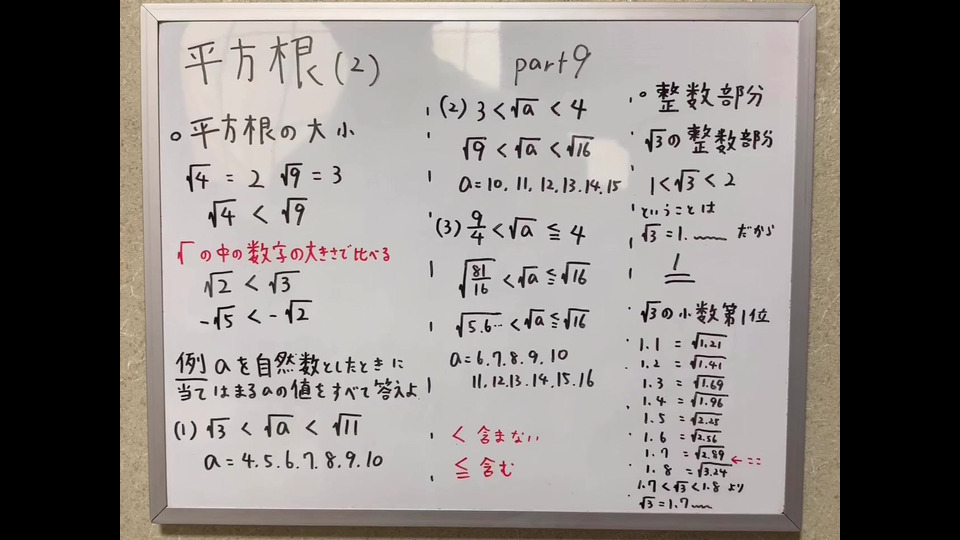 平方根(2)
part9
○平方根の大小
√4 = 2 √9 = 3
√4 < √9
√の中の数字の大きさで比べる
√2 < √3
-√5 < -√2
例 aを自然数としたときに
当てはまるaの値をすべて答えよ
(1) √3 < √a < √11
a=4.5.6.7.8.9.10
(2) 3 < √a < 4
√9 < √a < √16
a=10. 11. 12.13.14.15
(3) 9/4 < √a ≦ 4
√81/16 < √a ≦ √16
√5.6… < √a ≦ √16
a=6.7.8.9.10
11.12.13.14.15.16
< 含まない
≦ 含む
○整数部分
√3の整数部分
1 < √3 < 2
ということは
√3 = 1.〰 だから
1
√3の小数第1位
1.1 = √1.21
1.2 = √1.41
1.3 = √1.69
1.4 = √1.96
1.5 = √2.25
1.6 = √2.56
1.7 = √2.89
←ここ
1.8 = √3.24
1.7 < √3 < 1.8 より
√3 = 1.7〰